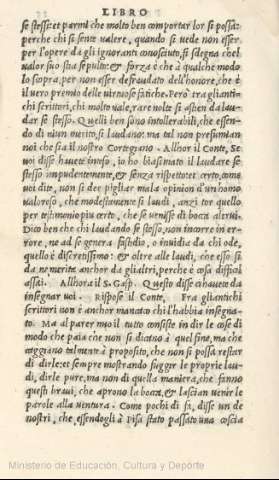 LIBRO
se stessi: et parmi che molto ben comportar lor si possa:
perche chi si sente valere, quando si vede non esser
per l'opere da gli ignoranti conosciuto, si sdegna che'l
valor suo stia sepulto: et forza è che à qualche modo
lo scopra, per non esser defraudato dell'honore, che è
il vero premio delle virtuose fatiche. Però tra gli anti-
chi scrittori, chi molto vale, rare volte si astien da lau-
dar se stesso. Quelli ben sono intollerabili, che essen-
do di niun merito, si laudano: ma tal non presumiam
noi che sia il nostro Cortegiano. Allhor il Conte, Se
voi disse havete inteso, io ho biasimato il laudare se
stesso impudentemente, et senza rispetto: et certo, come
voi dite, non si dee pigliar mala opinion d'un homo
valoroso, che modestamente si laudi, anzi tor quello
per testimonio piu certo, che se venisse di bocca altrui.
Dico ben che chi laudando se stesso, non incorre in er-
rore, ne ad se genera fastidio, o invidia da chi ode,
quello è discretissimo: et oltre alle laudi, che esso si
da ne merita anchor da gli altri, perche è cosa difficil
assai. Allhora il S. Gasp. Questo disse ci havete da
insegnar voi. Rispose il Conte, Fra gli antichi
scrittori non è anchor mancato chi l'habbia insegna-
to. Ma al parer mio il tutto consiste in dir le cose di
modo che paia che non si dicano à quel fine, ma che
caggiano talmente à proposito, che non si possa restar
di dirle: et sempre mostrando fuggir le proprie lau-
di, dirle pure, ma non di quella maniera, che fanno
questi bravi, che aprono la bocca, et lascian venir le
parole alla ventura. Come pochi dì fa, disse un de
nostri, che essendogli à Pisa stato passato una coscia
Ministerio de Educación, Cultura y Deporte